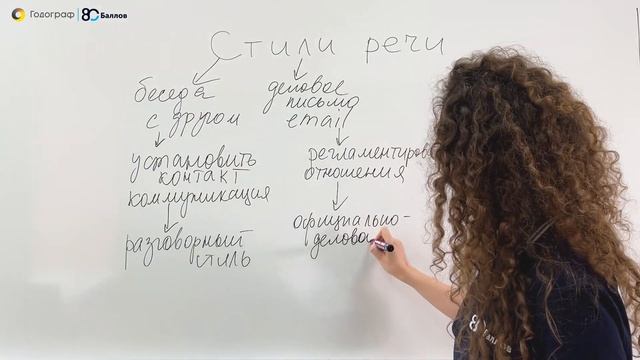 Годограф
80 Баллов
Стили речи
беседа
с другом
установить
контакт
коммуникация
разговорный
стиль
деловое
письмо
email
регламентиров
отношения
официально-
делово